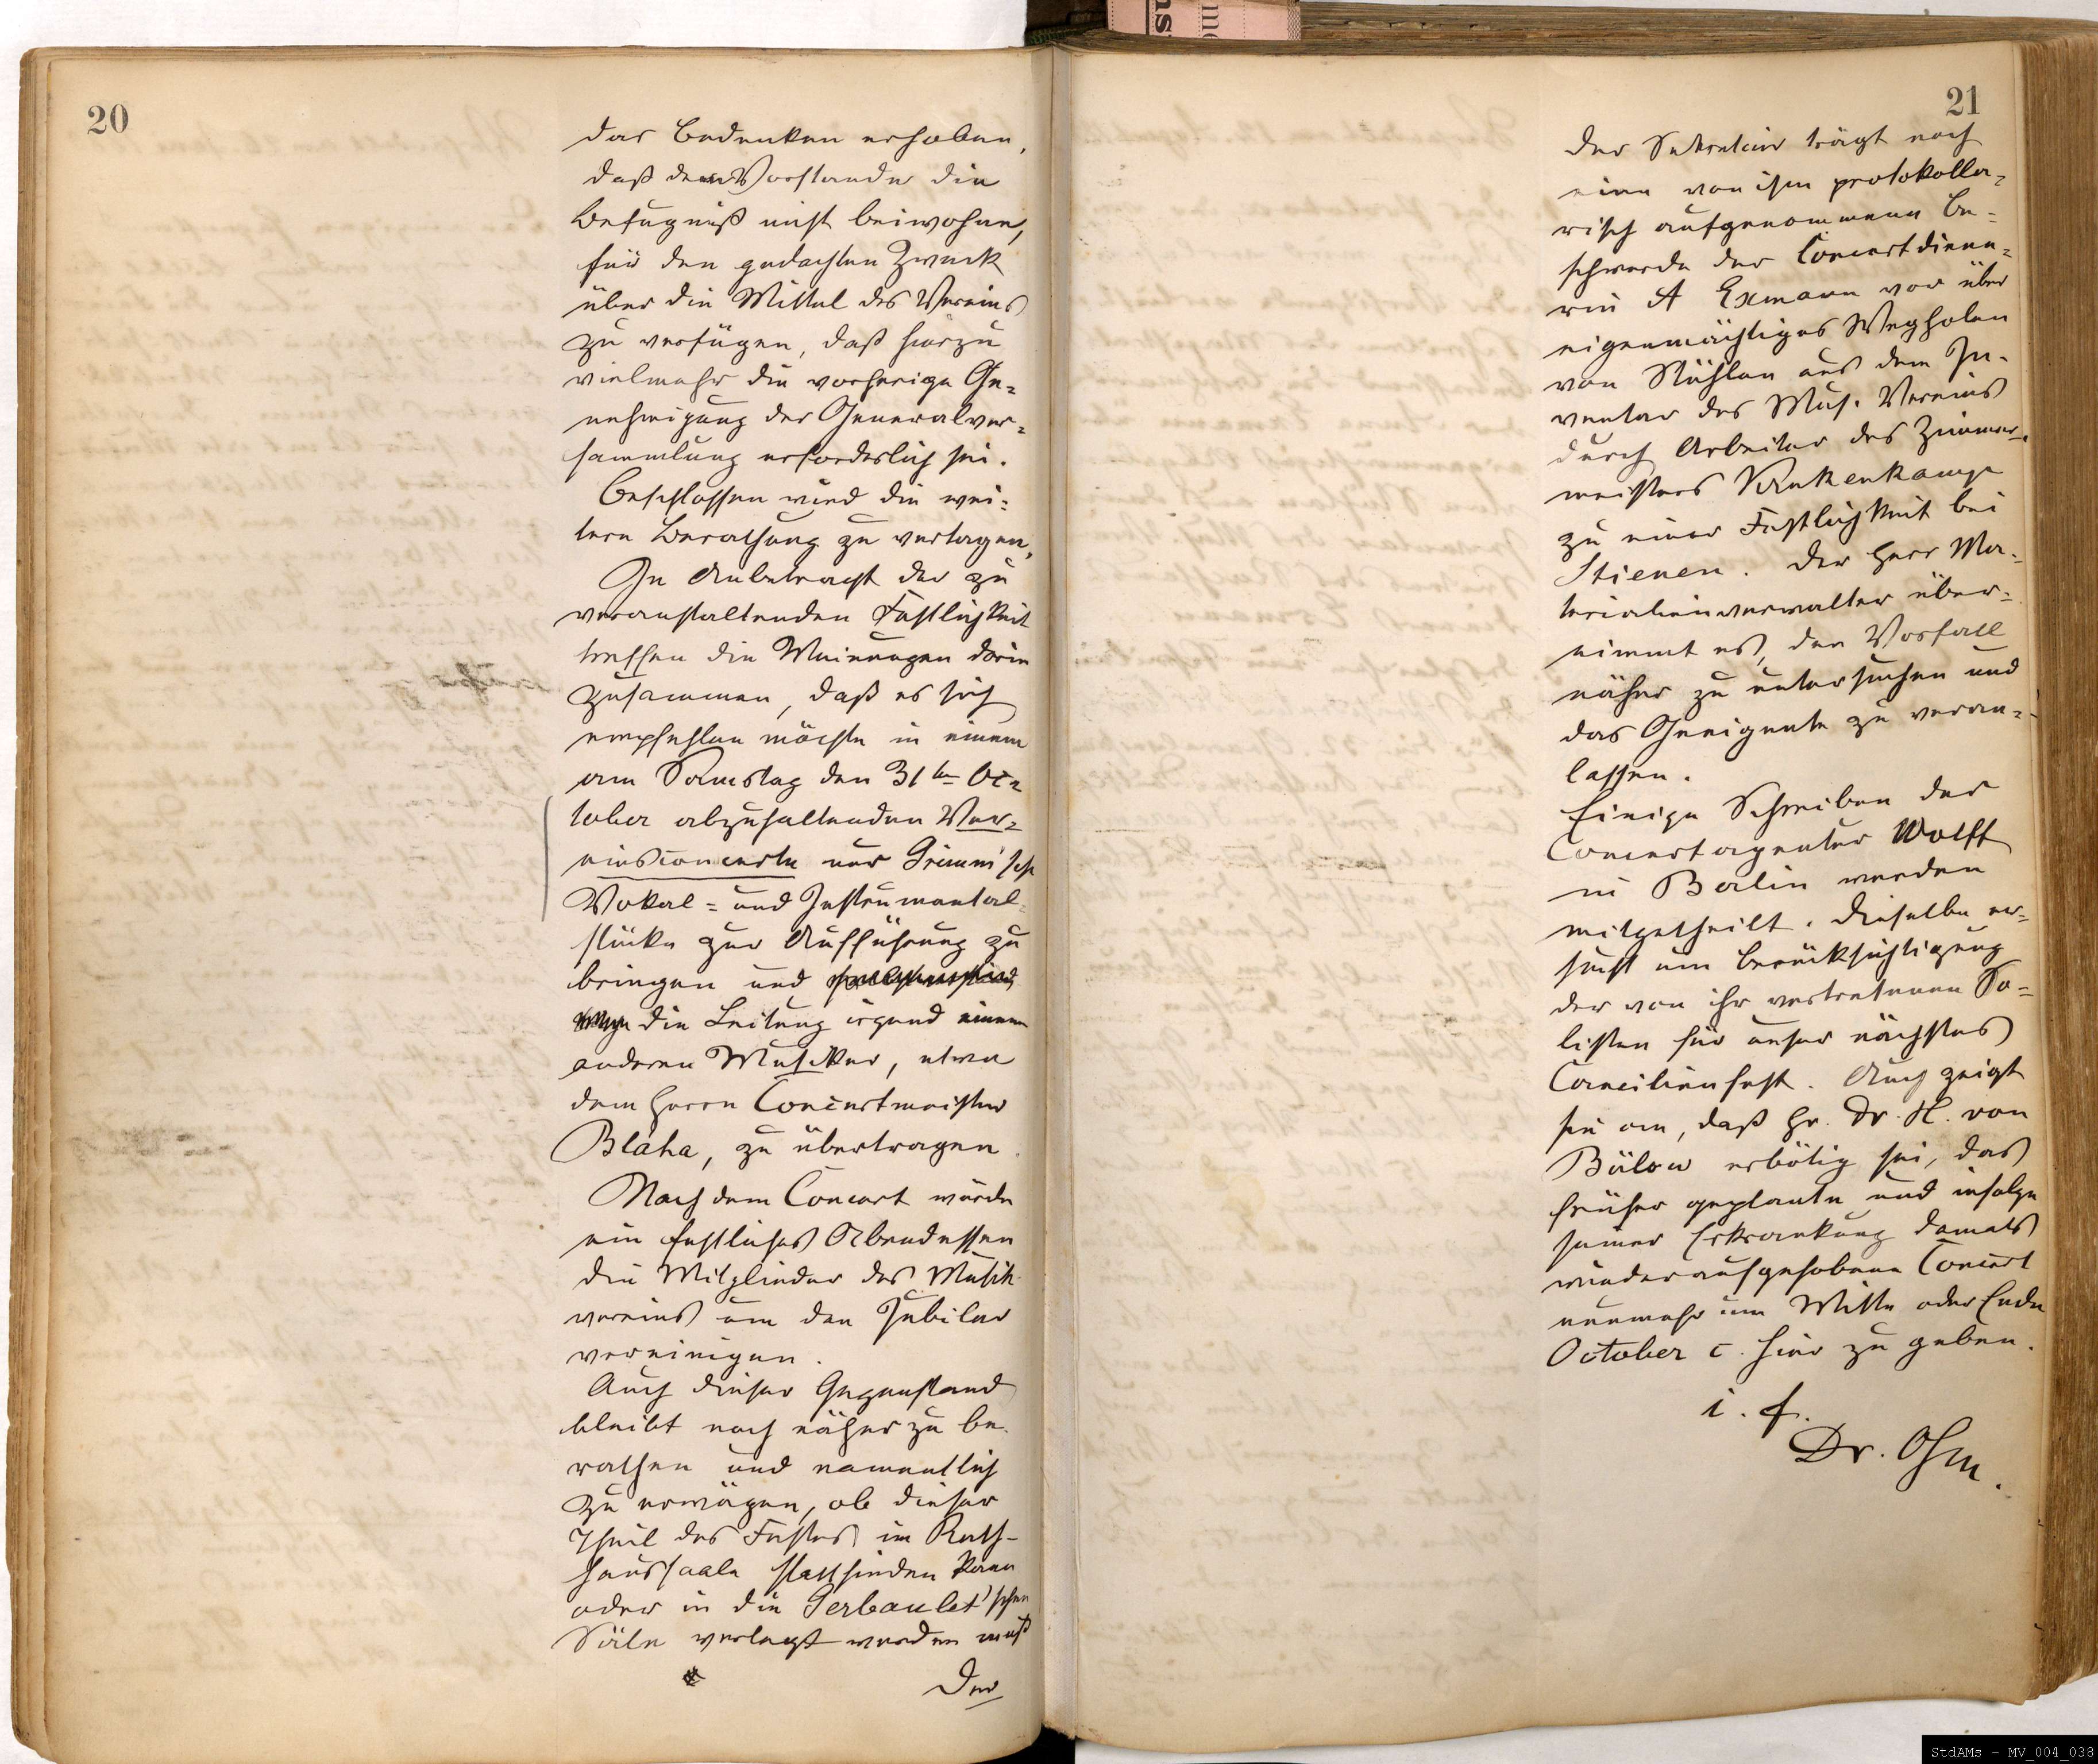 20
das Bedenken erhoben,
daß dem Vorstande die
Befugniß nicht beiwohne,
für den gedachten Zweck
über die Mittel des Vereins
zu verfügen, daß hierzu
vielmehr die vorherige Ge-
nehmigung der Generalver-
sammlung erforderlich sei.
Beschlossen wird die wei-
tere Berathung zu vertagen.
In Anbetracht der zu
veranstaltenden Festlichkeit
treffen die Meinungen darin
zusammen, daß es sich
empfehlen möchte in einem
am Samstag den 31ten Oc-
tober abzuhaltenden Ver-
einsconcerte nur Grimm'sche
Vokal- und Instrumental-
stücke zur Aufführung zu
bringen und
die Leitung irgend einem
anderen Musiker, etwa
dem Herrn Concertmeister
Blaha, zu übertragen.
Nach dem Concert würde
ein festliches Abendessen
die Mitglieder des Musik-
vereins um den Jubilar
vereinigen.
Auch dieser Gegenstand
bleibt noch näher zu be-
rathen und namentlich
zu erwägen, ob dieser
Theil des Festes im Rath-
haussaale stattfinden kann
oder in die Gerbaulet'schen
Säle verlegt werden muß
Der
21
Der Sekretair trägt noch
eine von ihm protokolla-
risch aufgenommene Be-
schwerde der Concertdiene-
rin A Exmann vor über
eigenmächtiges Wegholen
von Stühlen aus dem In-
ventar des Mus. Vereins
durch Arbeiter des Zimmer-
meisters
zu einer Festlichkeit bei
Stienen. Der Herr Ma-
terialienverwalter über-
nimmt es, den Vorfall
näher zu untersuchen und
das Geeignete zu veran-
lassen.
Einige Schreiben der
Concertagentur Wolff
in Berlin werden
mitgetheilt. Dieselbe er-
sucht um Berücksichtigung
der von ihr vertretenen So-
listen für unser nächstes
Caecilienfest. Auch zeigt
sie an, daß Hr. Dr. H. von
Bülow erbötig sei, das
früher geplante und infolge
seiner Erkrankung damals
wiederaufgehobene Concert
nunmehr um Mitte oder Ende
October c. hier zu geben.
i. f.
Dr. Ohm.
StdAMs - MV_004_038